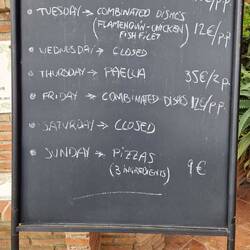 • TUESDAY → COMBINATED DISHES 12€/p.p.
(FLAMENQUIN - CHICKEN
FISH FILET)
• WEDNESDAY → CLOSED
• THURSDAY → PAELLA 35€/2p.
• FRIDAY → COMBINATED DISHES 12€/p.p
• SATURDAY → CLOSED
• SUNDAY → PIZZAS 9€
(3 INGREDIENTS)